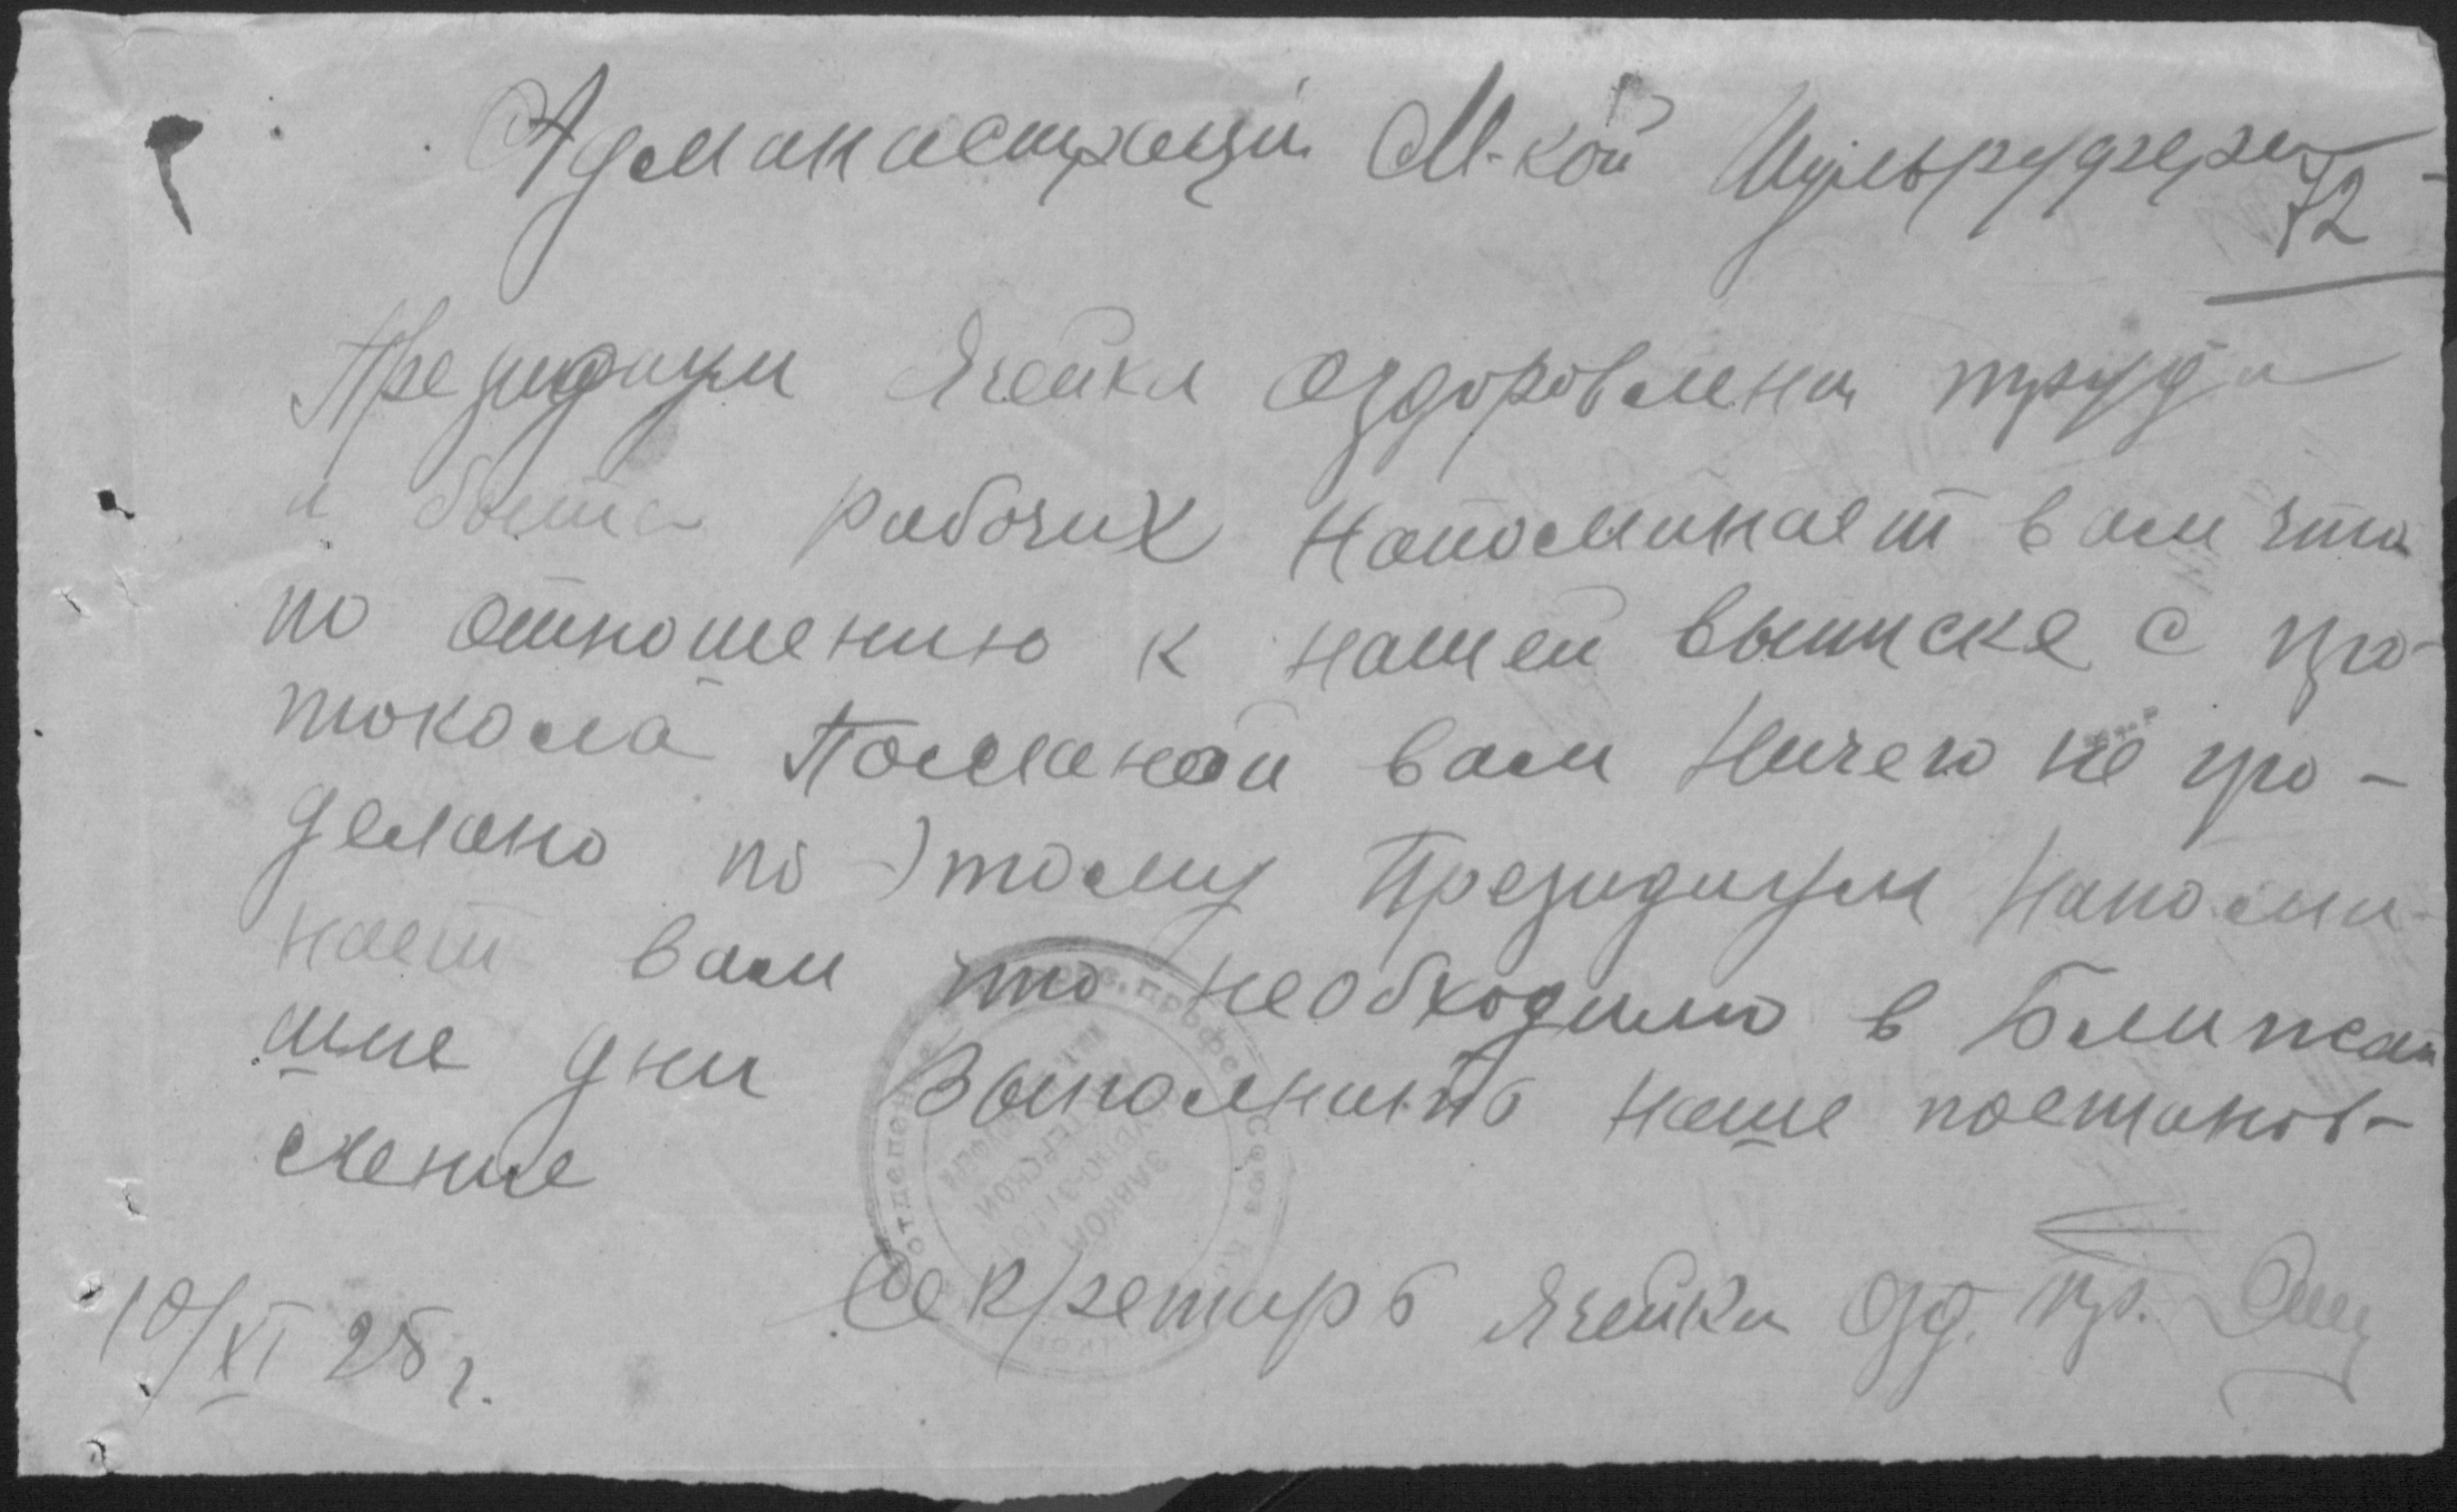 Админастраций М-кой Шульрудгери
72
Президиум Ячейки Оздоровлени труда
и быта рабочих Напоминает вам что
по отношению к нашей выписке с про-
токола Посланой вам Ничего не про-
делано по этому Президиум Напоми-
нает вам что необходимо в Ближай
шие дни Выполнить наше постанов-
ление
Секретарь Ячейки Озд. тр.
10/XI 25 г.